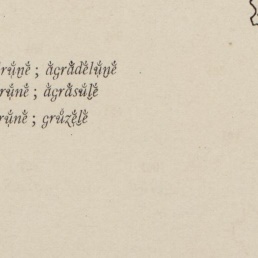 rṳ̆n̥ĕ ; ăgrădĕlṳ̆n̥ĕ
rṳ̆nĕ ; ăgrăsṳ̆l̥ĕ
rṳ̆nĕ ; grŭze̥lĕ